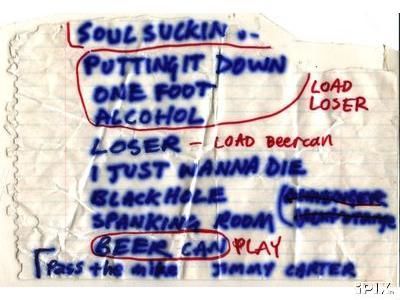 SOUL SUCKIN ..
PUTTING IT DOWN
ONE FOOT
ALCOHOL
LOAD
LOSER
LOSER – LOAD Beercan
I JUST WANNA DIE
BLACKHOLE
SPANKING ROOM
BEER CAN PLAY
Pass the mike JIMMY CARTER
iPIX